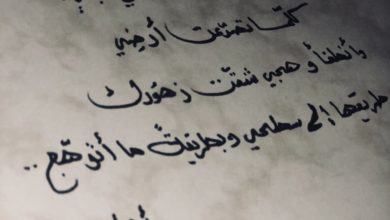 كلما تصدعت أرضي
وأنطفأ وهجي شقت زهورك
طريقها إلى سطحي وبطريقةً ما أتوهّج ..